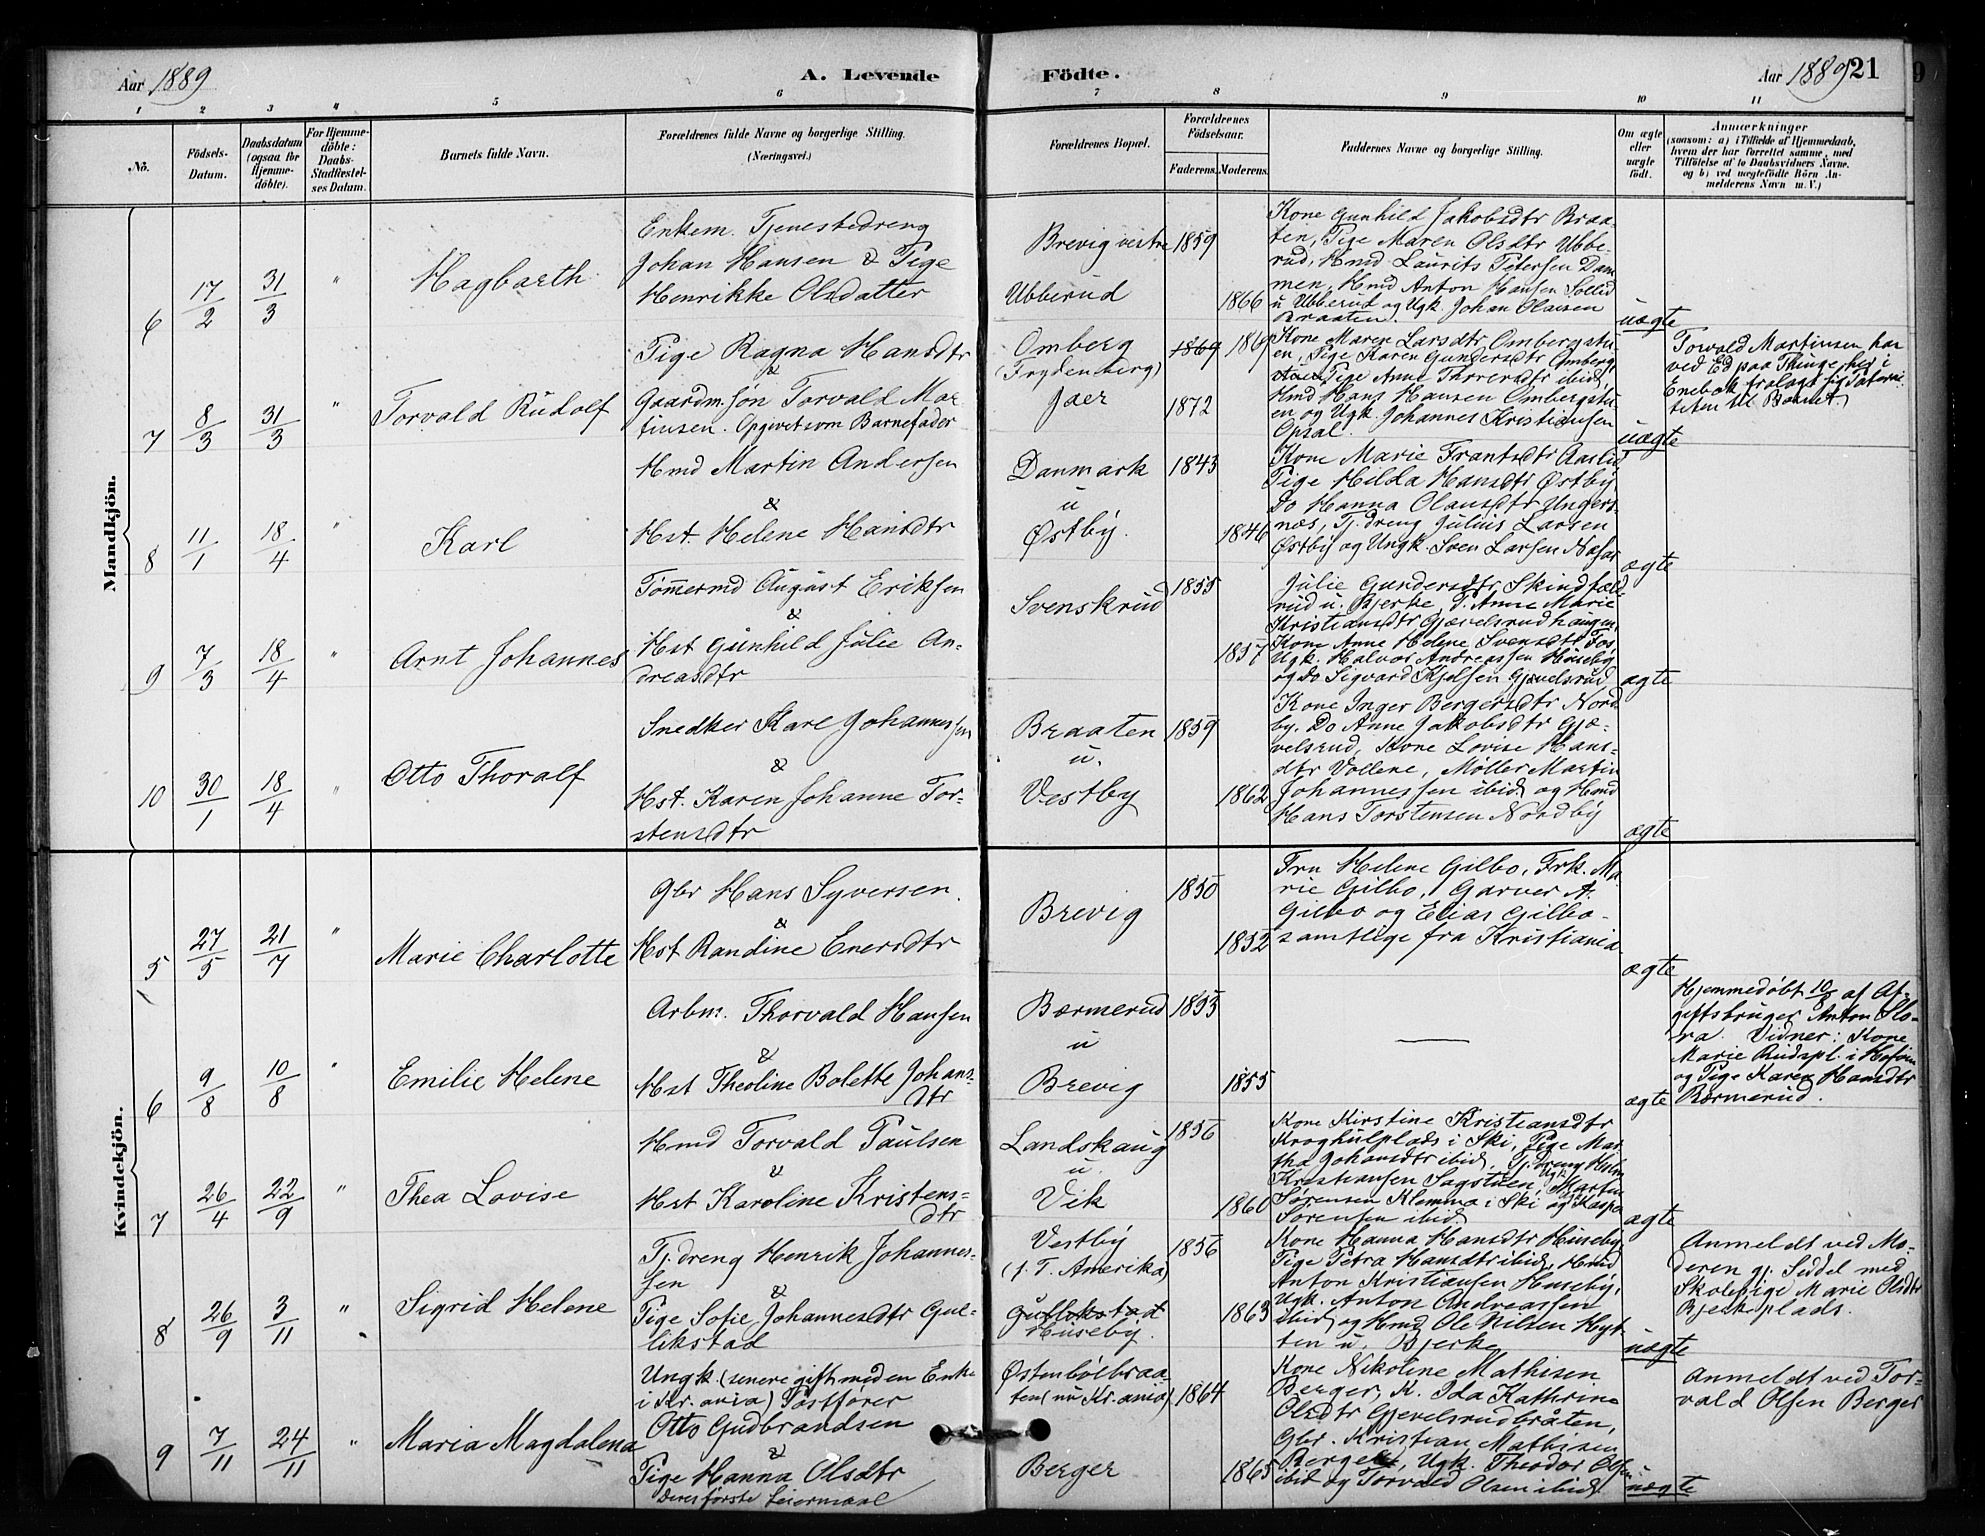 Aar 1889
A. Levende
Födte.
Aar 1889
21
1 2 3 4 5 6 7 8 9 10 11
No.
Födsels-
Datum.
Daabsdatum
(ogsaa for
Hjemme-
döbte).
For Hjemme-
döbte:
Daabs-
Stadfæstel-
ses Datum.
Barnets fulde Navn.
Forældrenes fulde Navne og borgerlige Stilling.
(Næringsvei.)
Forældrenes Bopæl.
Forældrenes
Födselsaar.
Faderens. Moderens.
Faddernes Navne og borgerlige Stilling.
Om ægte
eller
uægte
födt.
Anmærkninger
(saasom: a) i Tilfælde af Hjemmedaab,
hvem der har forrettet samme, med
Tilföielse af to Daabsvidners Navne.
og b) ved uægtefödte Börn An-
melderens Navn m. V.)
Mandkjön.
6
17/2
31/3
"
Hagbarth
Enkem. Tjenestedreng
Johan Hansen & Pige
Henrikke Olsdatter
Brevig vestre
Ubberud
1859
1866
Kone Gunhild Jakobsdtr Braa-
ten, Pige Maren Olsdtr Ubbe-
rud, Hmd Laurits Petersen Dam-
men, Hmd Anton Hansen Sollid
u Ubberud og Ugk. Johan Olausen
Braaten.
uægte
7
8/3
31/3
"
Torvald Rudolf
Pige Ragna Hansdtr
&
Gaardm.søn Torvald Mar-
tinsen. Opgivet som Barnefader
Omberg
(Frydenberg)
Jaer
1869 1869
1872
Kone Maren Larsdtr Ombergstu-
en, Pige Karen Gundersdtr Omberg
stuen Pige Anne Thorersdtr ibid,
Hmd Hans Hansen Ombergstu-
en og Ugk. Johannes Kristiansen
Opsal.
uægte
Torvald Martinsen har
ved Ed paa Thinge hed i
Enebak fralagt sig Paterni-
teten til Barnet.
8
11/1
18/4
"
Karl
Hmd Martin Andersen
&
Hst. Helene Hansdtr
Danmark
u
Østby.
1843
1846
Kone Marie Frantsdtr Aaslid
Pige Hilda Hansdtr Østby
Do Hanna Olausdtr Ungers-
næs, Tj.dreng Julius Larsen
Østby og Ungk. Sven Larsen
ægte
9
7/3
18/4
"
Arnt Johannes
Tømmermd August Eriksen
&
Hst Gunhild Julie An-
dreasdtr
Svenskrud
1855
1857
Julie Gundersdtr Skindfæld-
rud u. Bjerke, P. Anne Marie
Kristiansdtr Gjævelsrudhaugen,
Kone Anne Helene Svensdtr Fos
Ugk. Halvor Andreassen Huseby
og Do Sigvard Kjelsen Gjævelsrud
ægte
10
30/1
18/4
"
Otto Thoralf
Snedker Karl Johannessen
&
Hst. Karen Johanne Tor-
stensdtr
Braaten
u.
Vestby
1859
1862
Kone Inger Bergersdtr Nord
by. Do Anne Jakobsdtr Gjæ-
velsrud, Kone Lovise Hans-
dtr Vollene, Møller Martin
Johannessen ibid og Hmd
Hans Torstensen Nordby
ægte
Kvindekjön.
5
27/5
21/7
"
Marie Charlotte
Gbr Hans Syversen.
&
Hst Randine Enersdtr
Brevig
1850
1852
Fru Helene Gilbo, Frk. Ma-
rie Gilbo, Garver A.
Gilbo og Elias Gilbo -
samtlige fra Kristiania
ægte
6
9/8
10/8
"
Emilie Helene
Arbm. Thorvald Hansen
&
Hst Theoline Bolette Johans-
dtr
Bærmerud
u
Brevig
1853
1855
ægte
Hjemmedøbt 10/8 af Af-
giftsbruger Anton Flo-
ra. Vidner: Kone
Marie Rudspl. i Hofvin
og Pige Karen Hansdtr
Bærmerud.
7
26/4
22/9
"
Thea Lovise
Hmd Torvald Paulsen
&
Hst Karoline Kristens-
dtr
Landskaug
u.
Vik
1856
1860
Kone Kirstine Kristiansdtr
Kroghulplads i Ski, Pige Mar-
tha Johansdtr ibid, Tj.dreng
Kristiansen Sagstuen, Ugk. Martin
Sørensen Klemma i Ski og
Sørensen ibid.
ægte
8
26/9
3/11
"
Sigrid Helene
Tj.dreng Henrik Johannes-
sen
&
Pige Sofie Johannesdtr Gul-
likstad
Vestby
(f. T. Amerika)
Gullikstad
Huseby.
1856
1863
Kone Hanna Hansdtr Huseby
Pige Petra Hansdtr ibid, Hmd
Anton Kristiansen Huseby,
Ugk. Anton Andreassen
ibid og Hmd Ole Nilsen Hyt-
ten u. Bjerke
uægte
Anmeldt ved Mo-
deren gj. Seddel med
Skolepige Marie Olsdtr
Bjerkeplads.
9
7/11
24/11
"
Maria Magdalena
Ungk. (senere gift med en Enke
i Kr.ania) Postfører
Otto Gudbrandsen
&
Pige Hanna Olsdtr
Deres første Leiermaal
Østenbölbraa-
ten (nu Kr.ania)
Berger
1864
1865
Kone Nikoline Mathisen
Berger, K. Ida Kathrine
Olsdtr Gjevelsrudbråten,
Gbr. Kristian Mathisen
Berger, Ugk. Theodor Olsen
ibid og Torvald Olsen ibid.
uægte
Anmeldt ved Tor-
vald Olsen Berger